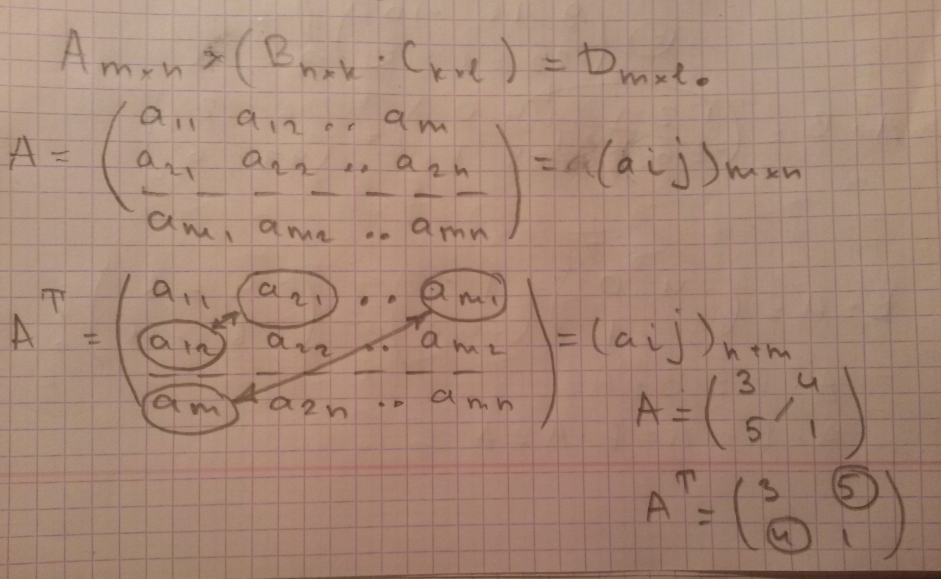 A m×n × (B n×k · C k×l) = D m×l.
A = ( a11 a12 .. am
a21 a22 .. a2n
— — — — — —
am1 am2 .. amn ) = (aij) m×n
A^T = ( a11 a21 .. am1
a12 a22 .. am2
— — — — — —
am a2n .. amn ) = (aij) n+m
A = ( 3 4
5 1 )
A^T = ( 3 5
4 1 )